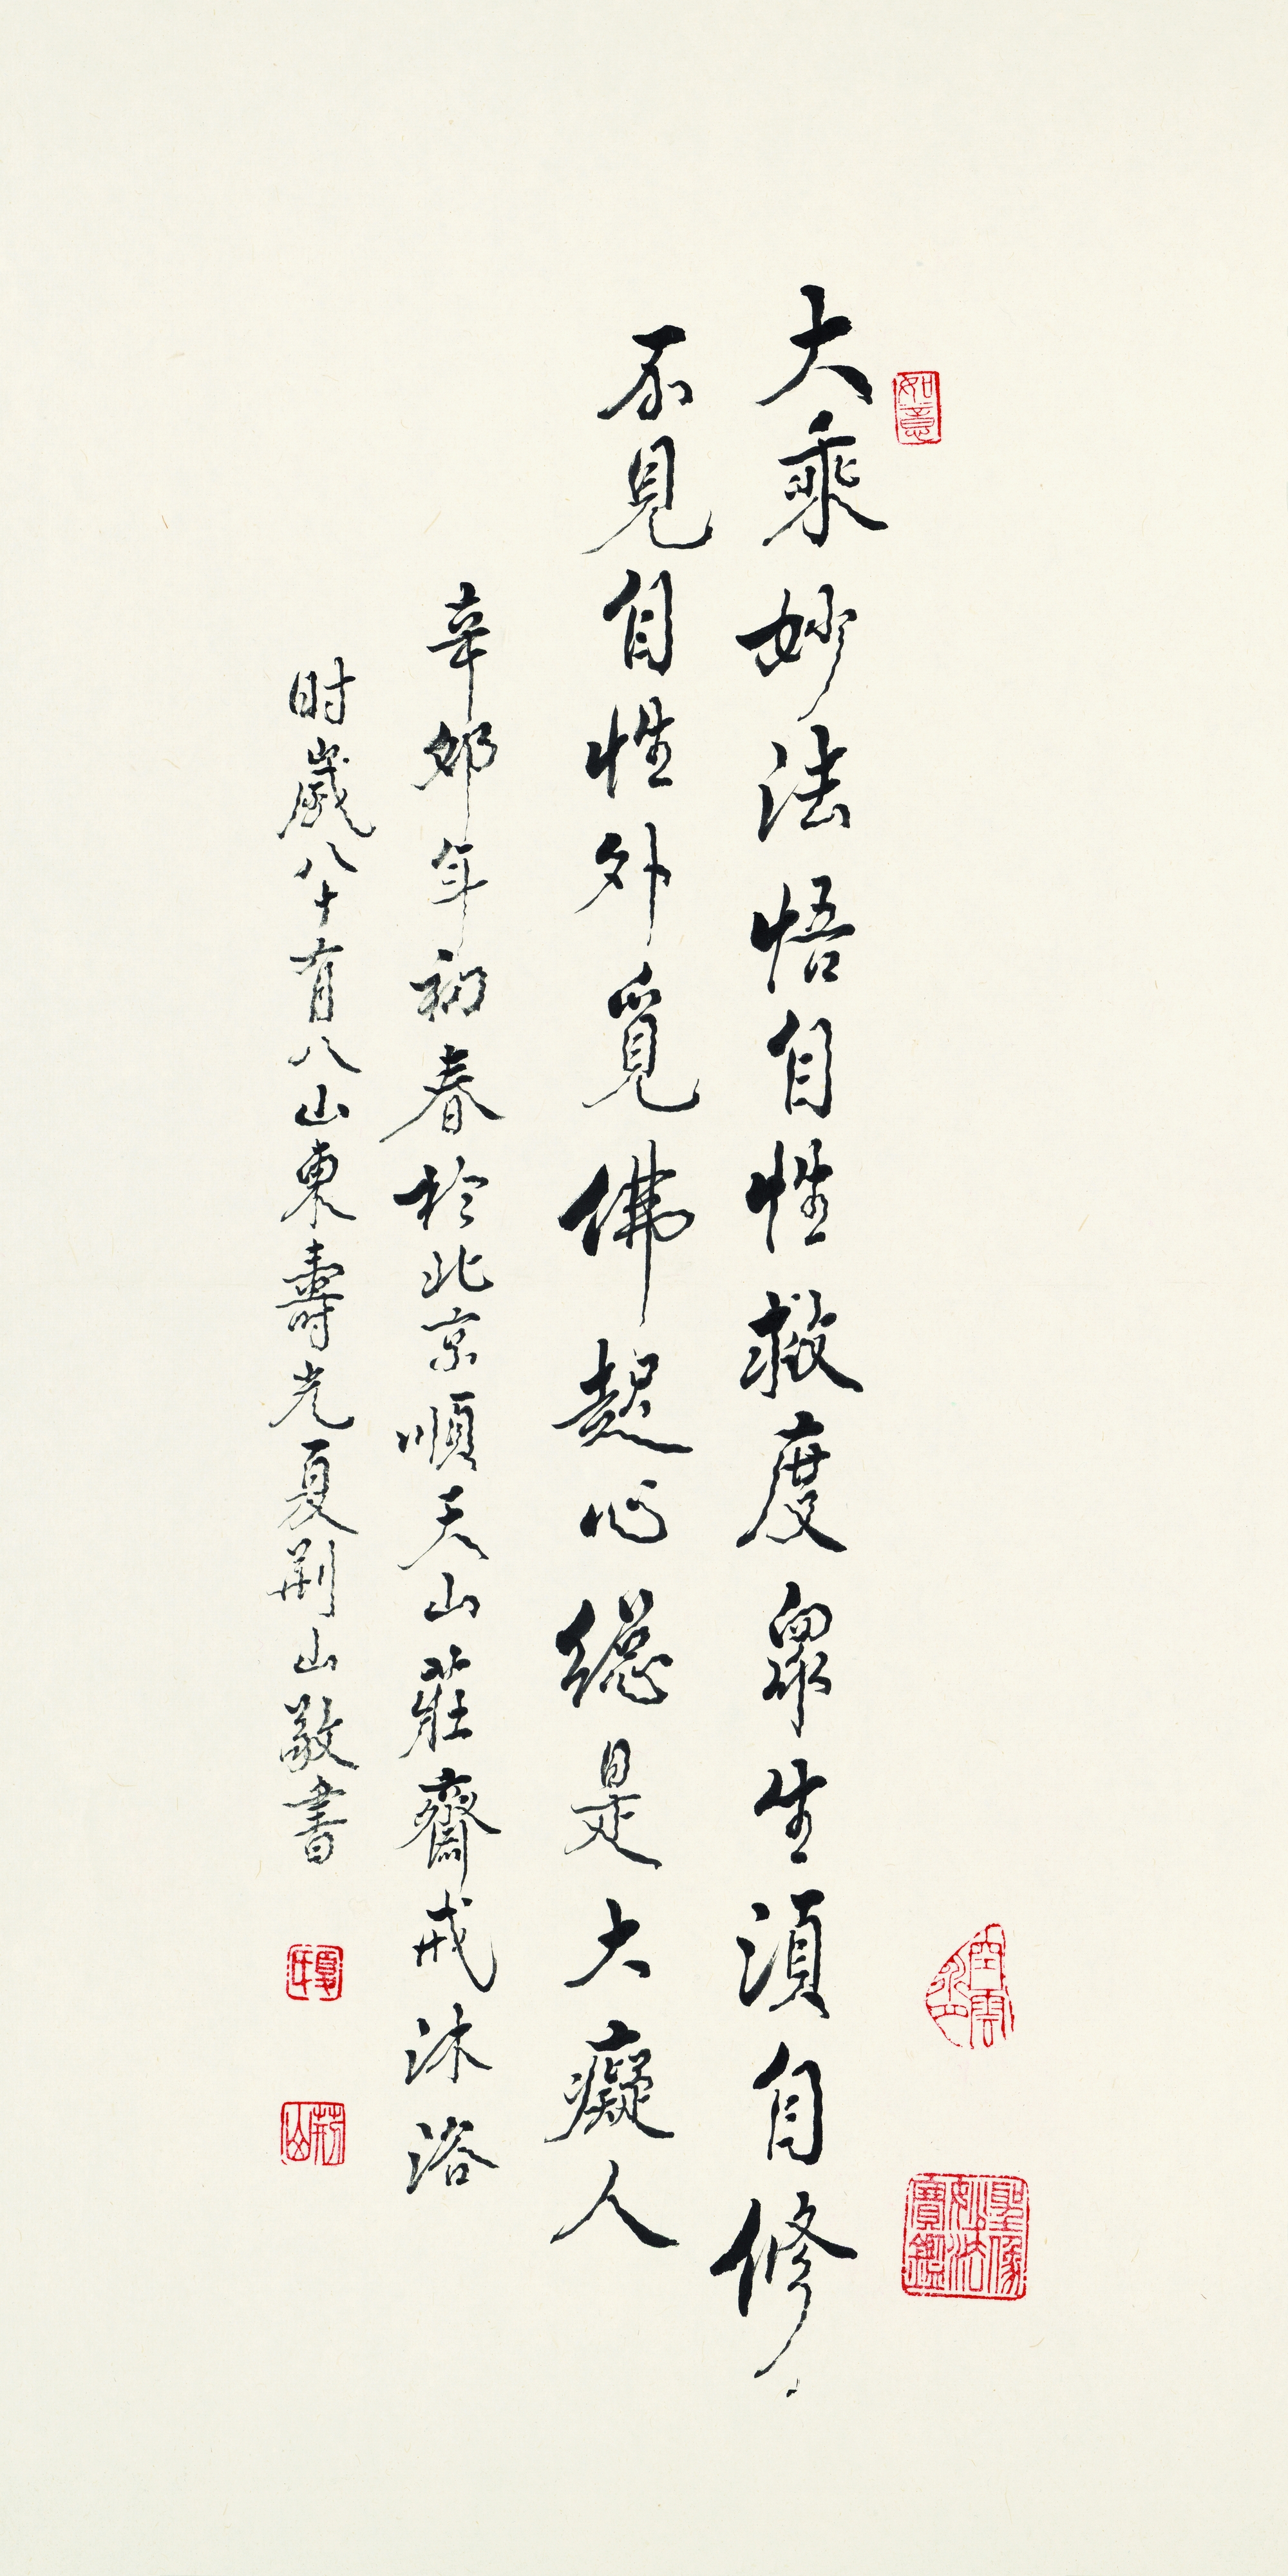 大乘妙法悟自性救度眾生須自修
不見自性外覓佛起心總是大癡人
辛卯年初春於北京順天山莊齋戒沐浴
时歲八十有八山東壽光夏荆山敬書
如意
聖像妙法寶鑑
夏氏
荊山